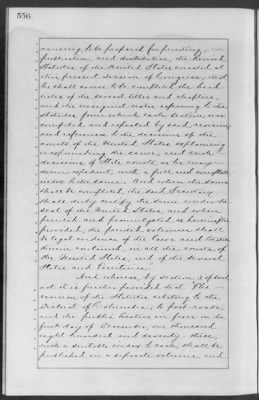 556
causing to be prepared for printing,
publication, and distribution, the Revised
Statutes of the United States enacted at
this present session of Congress; that
he shall cause to be completed the head
notes of the several titles and chapters,
and the marginal notes referring to the
statutes from which each section was
compiled and repealed by said revision
and references to the decisions of the
courts of the United States explaining
or expounding the same, and such
decisions of State courts as he may
deem expedient, with a full and complete
index to the same. And when the same
shall be completed, the said Secretary
shall duly certify the same under the
seal of the United States, and when
printed and promulgated as hereinafter
provided, the printed volumes shall
be legal evidence of the laws and treaties
therein contained, in all the courts of
the United States, and of the several
States and Territories.
And whereas, by section 3 of said
act it is further provided that "The
revision of the Statutes relating to the
District of Columbia, to post-roads,
and the public treaties in force on the
first day of December, one thousand
eight hundred and seventy-three,
with a suitable index to each, shall be
published in a separate volume, and